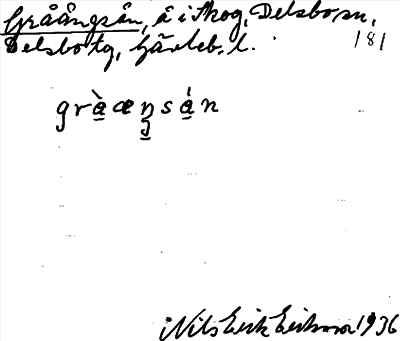 Gråångsån, å i Skog, Delsbo sn,
Delsbo tg, Gävleb. l. 181
gràæŋsán
Nils Erik Eriksson 1936